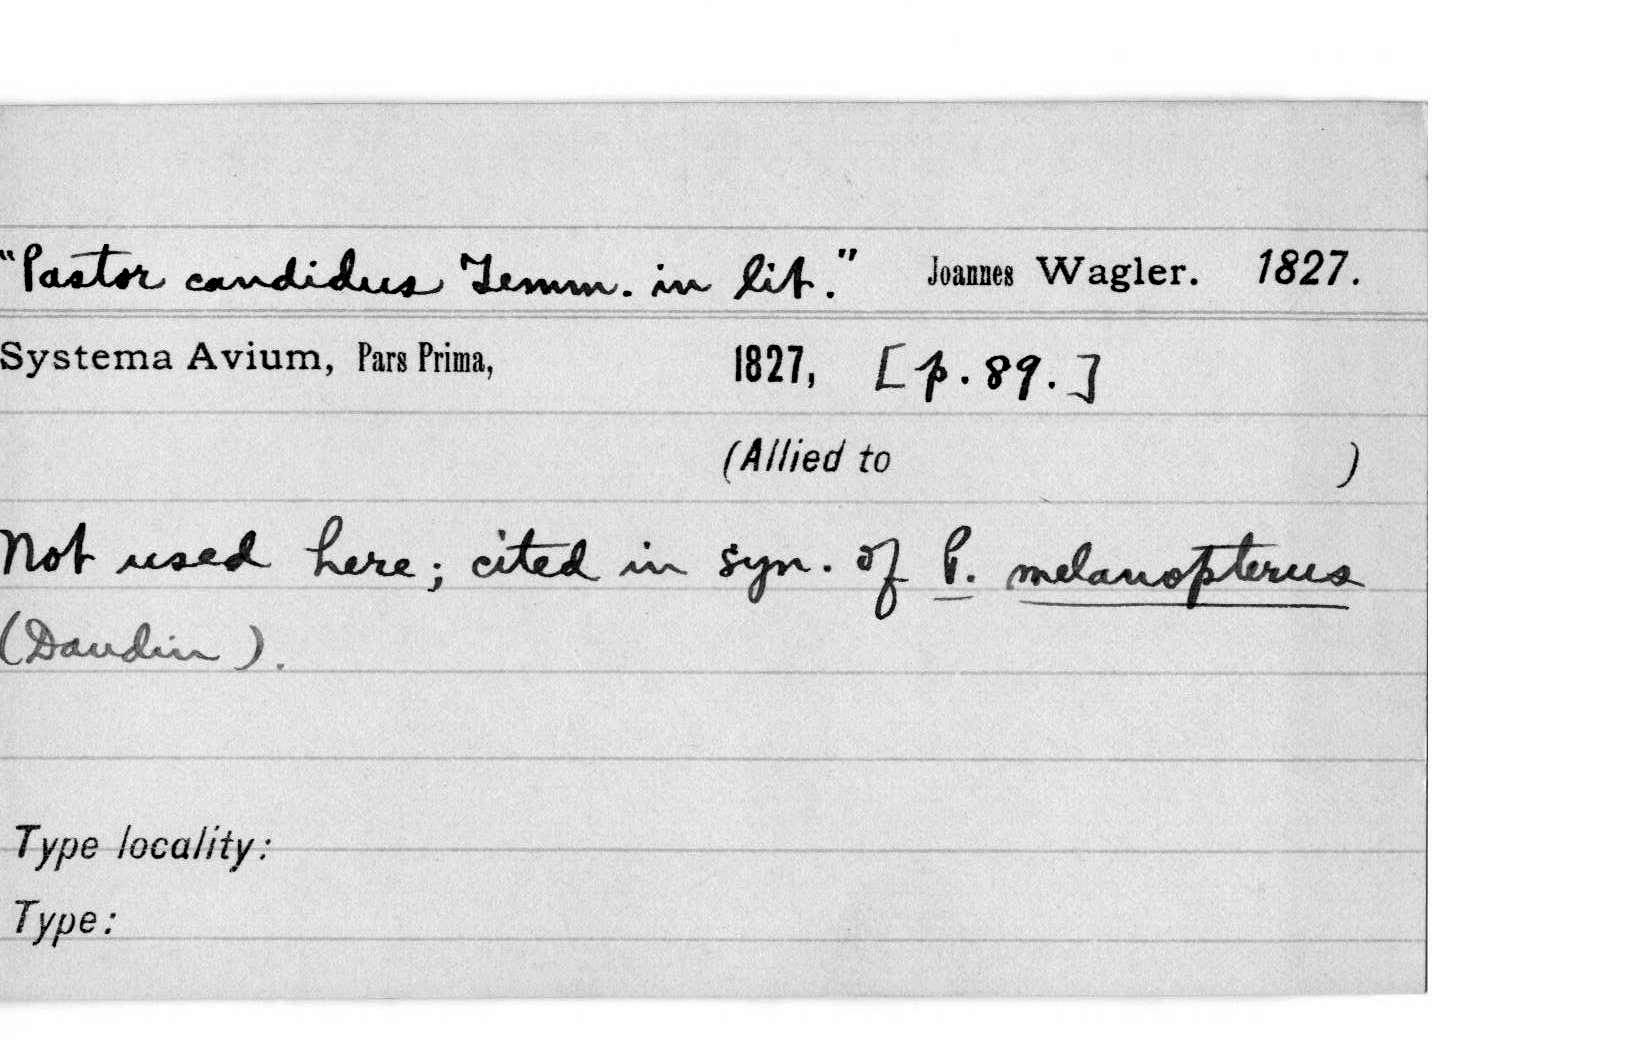 "Pastor candidus Temm. in lit." Joannes Wagler. 1827.
Systema Avium, Pars Prima, 1827, [p. 89.]
(Allied to )
Not used here; cited in syn. of P. melanopterus
(Daudin).
Type locality:
Type: